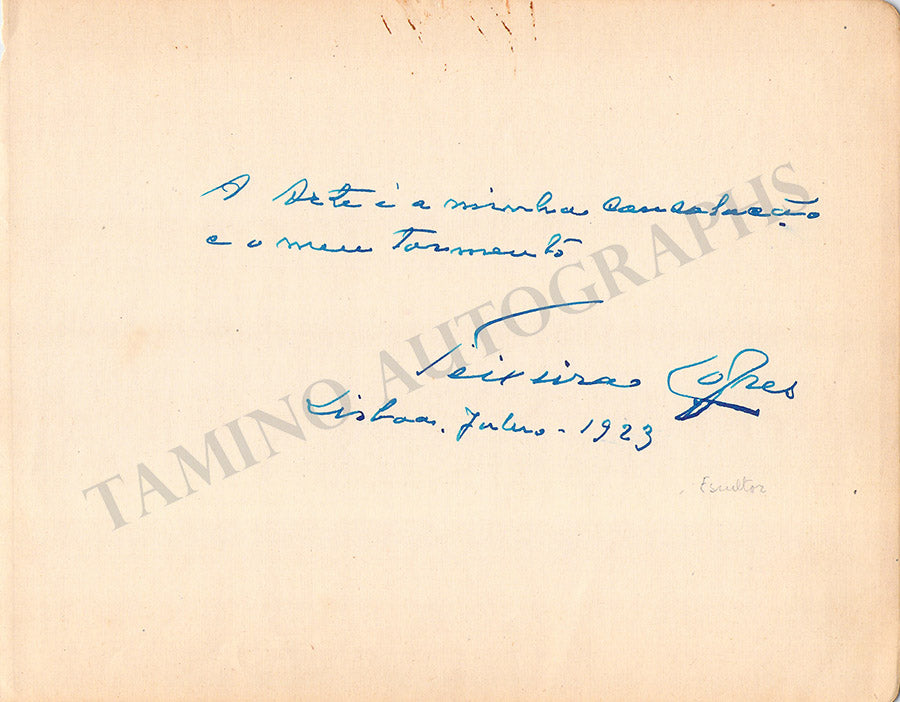 A Arte é a minha consolação
e o meu tormento
Teixeira Lopes
Lisboa, Julho - 1923
Escultor
TAMINO AUTOGRAPHS